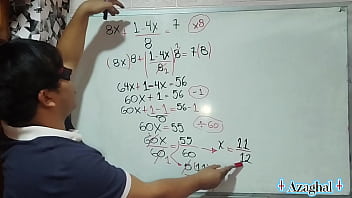 8x + 1-4x/8 = 7 (x8)
(8x)8 + (1-4x/8)8 = 7(8)
64x+1-4x=56
60x+1=56 (-1)
60x+1-1=56-1
60x=55 (÷60)
60x/60 = 55/60 → x = 11/12
Azaghal